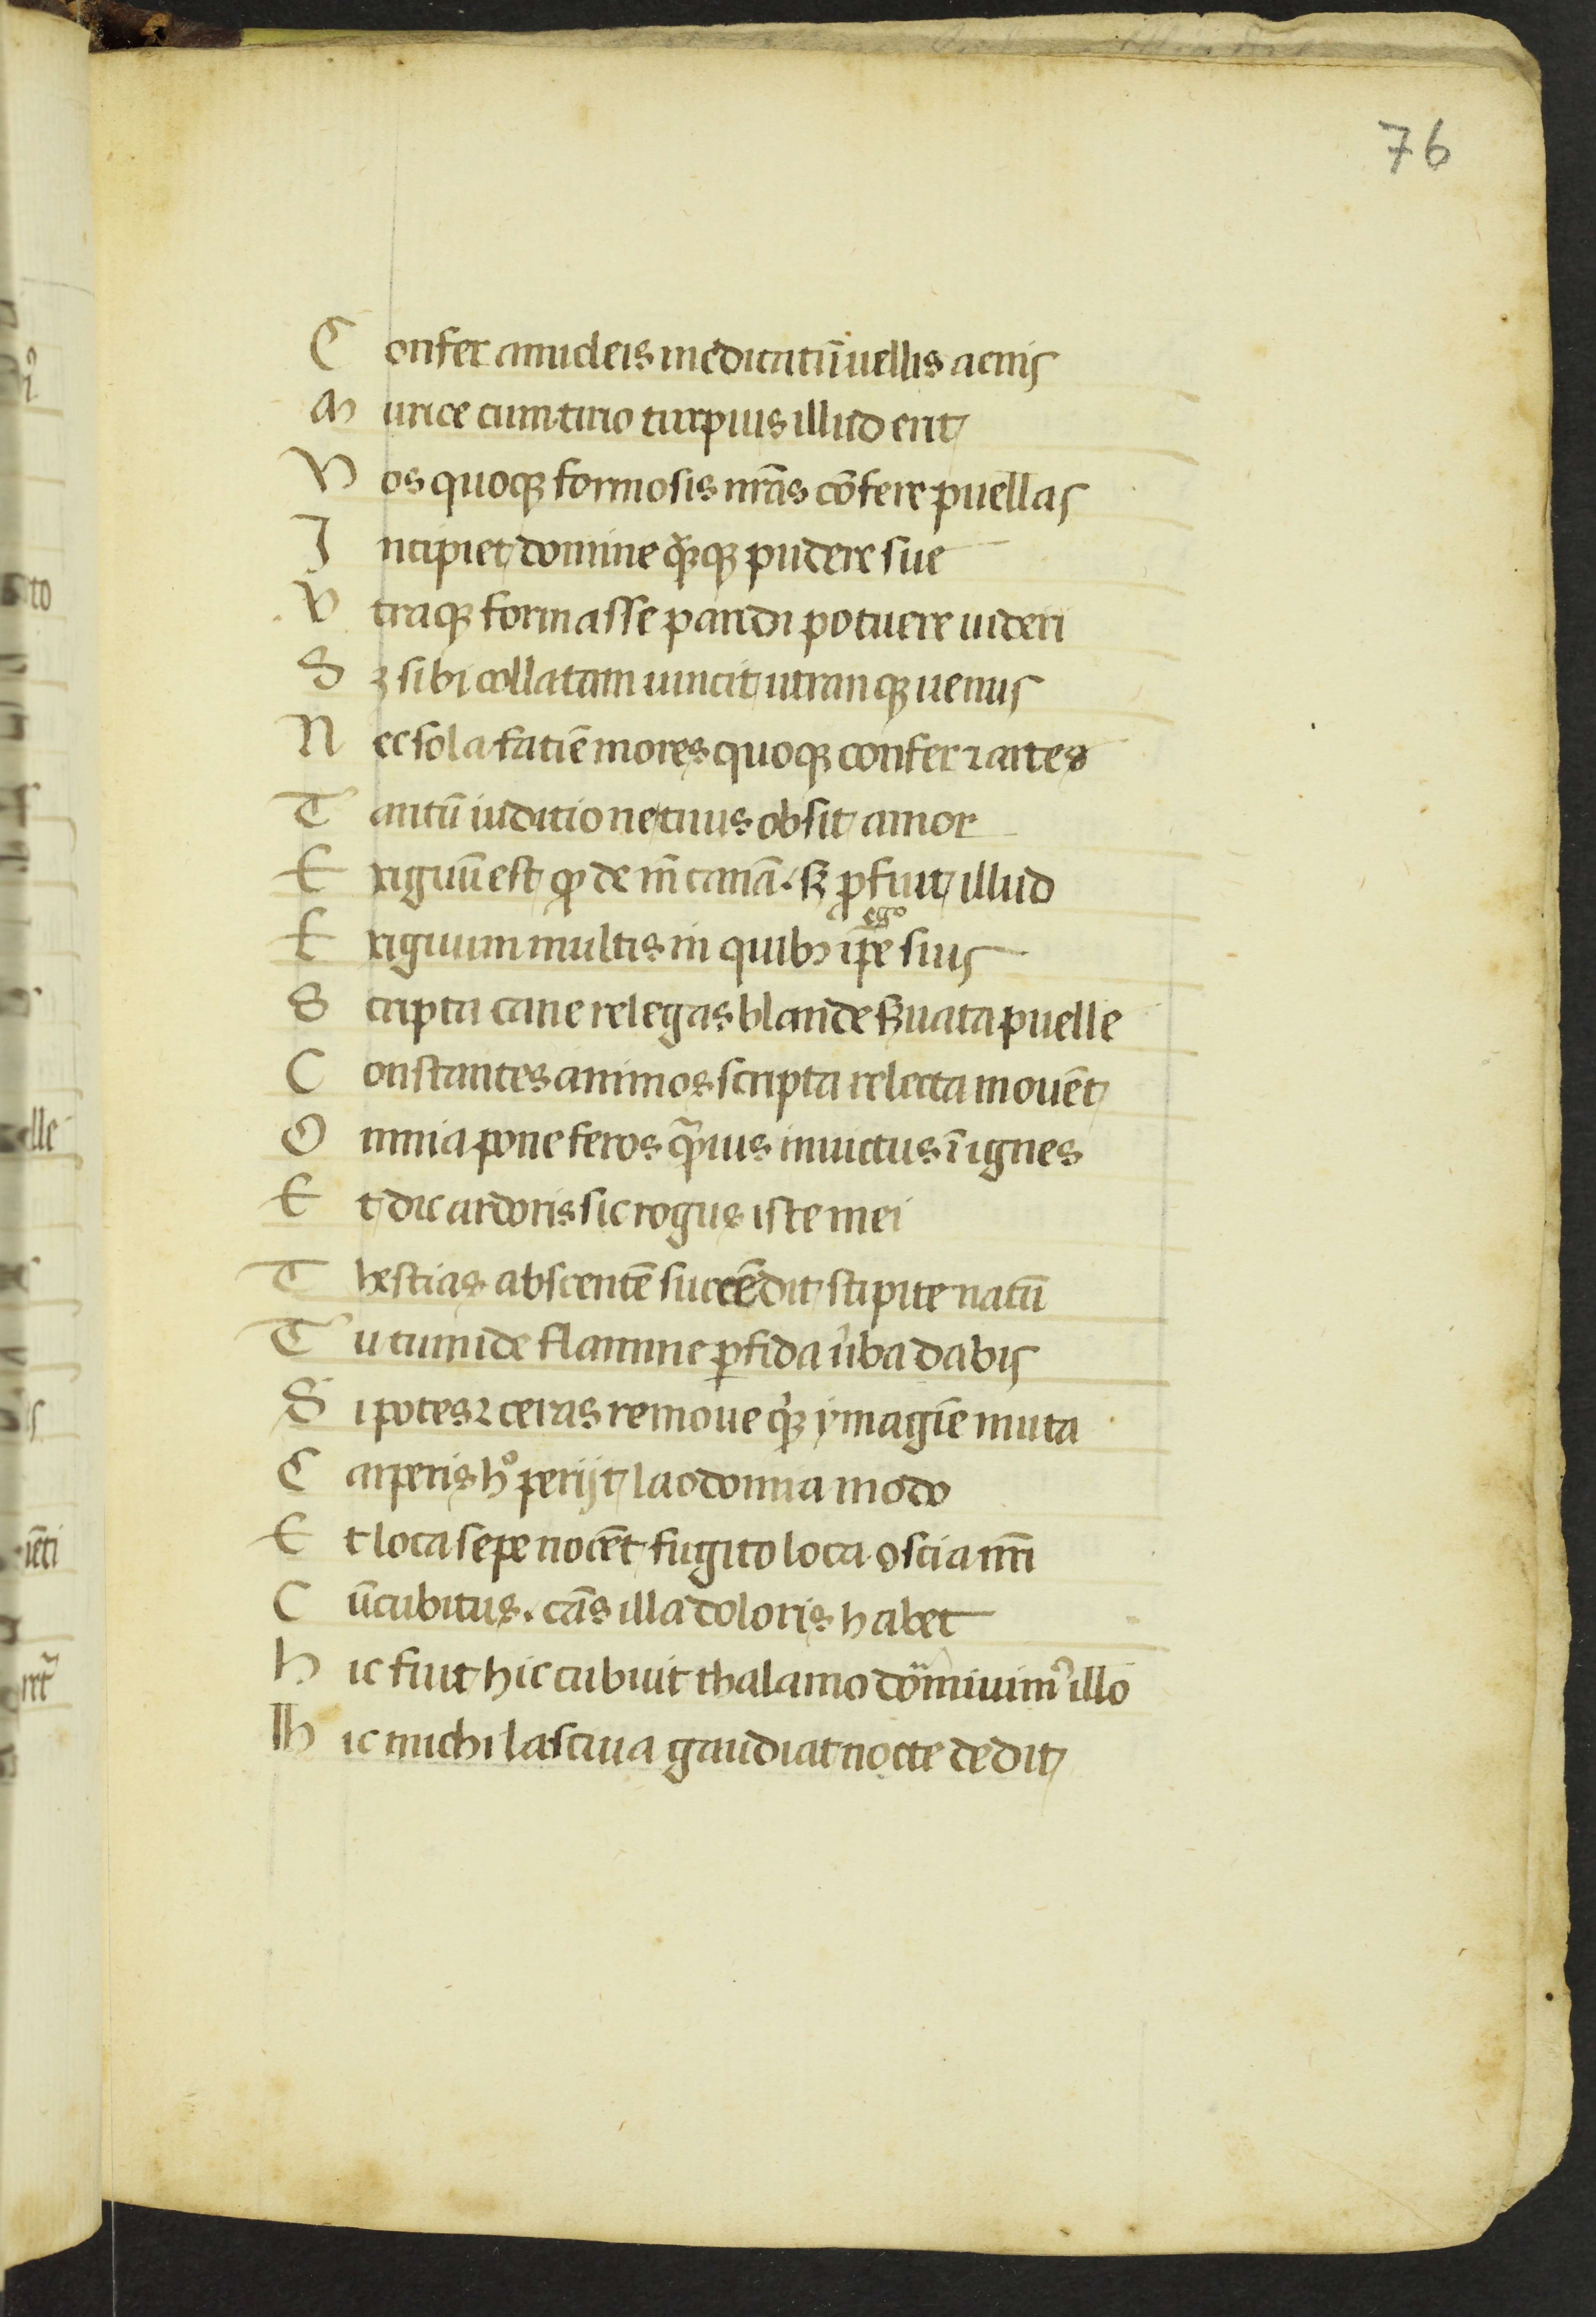 76
Confer amicleis medicatū uellis acnis
Murice cum tirio turpius illud erit
Vos quoqꝫ formosis nr̄as cōfere puellas
Incipiet domine q̄ꝫqꝫ pudere sue
Vtraqꝫ formasse paridi potuere uideri
Sꝫ sibi collatam uincit utranqꝫ uenus
Nec sola fatiē mores quoqꝫ confer ⁊ artes
Tantū iuditio ne tuus obsit amor
Exiguū est qđ de īn canā. sꝫ ꝓfuit illud
ego
Exiguum multis in quibꝫ ip̄e fius
Scripta caue relegas blande ẜuata puelle
Constantes animos scripta relecta mouēt
Omnia pone feros q̄uis inuictus ī ignes
Et dic ardoris sic rogus iste mei
Thestias abscentē succēdit stipite natū
Tu tumide flamme ꝑfida ūba dabis
Si potes ⁊ ceras remoue q̇ꝫ ymagīe muta
Carperis h° perijt laodomia modo
Et loca sepe nocēt fugito loca oscia nr̄i
Cūcubitus. cās illa doloris habet
Hic fuit hic cubuit thalamo dormiuimꝰ illo
Hic michi lasciua gaudiat nocte dedit